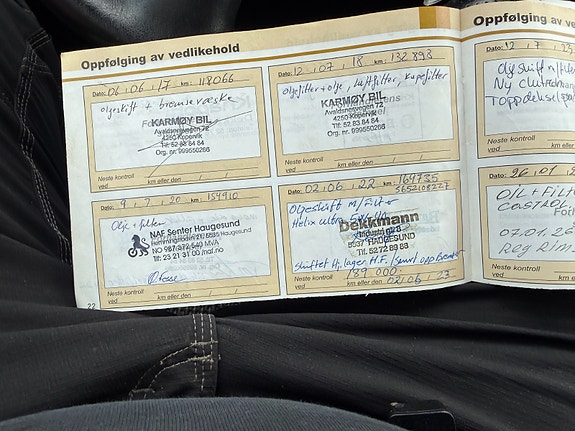 Oppfølging av vedlikehold
Dato: 06/06/17 km: 118066
oljeskift + bremsevæske
KARMØY BIL
Avaldsnesvegen 72
4250 Kopervik
Tlf: 52 83 84 84
Org. nr. 999650266
Neste kontroll
ved km eller den / /
Dato: 12.07.18 km: 132893
oljefilter + olje, luftfilter, kupefilter
KARMØY BIL
Avaldsnesvegen 72
4250 Kopervik
Tlf: 52 83 84 84
Org. nr. 999650266
Neste kontroll
ved km eller den / /
Dato: 9/7/20 km: 154910
Olje + filter
NAF Senter Haugesund
Haugesund
NO 987 372 640 MVA
Tlf: 23 21 31 00
Neste kontroll
ved km eller den / /
22
Dato: 02/06/22 km: 169735
Oljeskift m/Filter
Helix ultra
Dekkmann
5537 HAUGESUND
Tlf: 52 72 89 88
skiftet Hj.lager H.F.
Neste kontroll 189 000.
ved km eller den 02/06/23
Oppfølging av ve
Dato: 12.7.23
Oljeskift m/filter
Ny
Toppdeksel
Neste kontroll
ved
Dato: 26/01
OLJ + FILT
CASTROL
07.01.26
Reg
Neste kontroll
ved